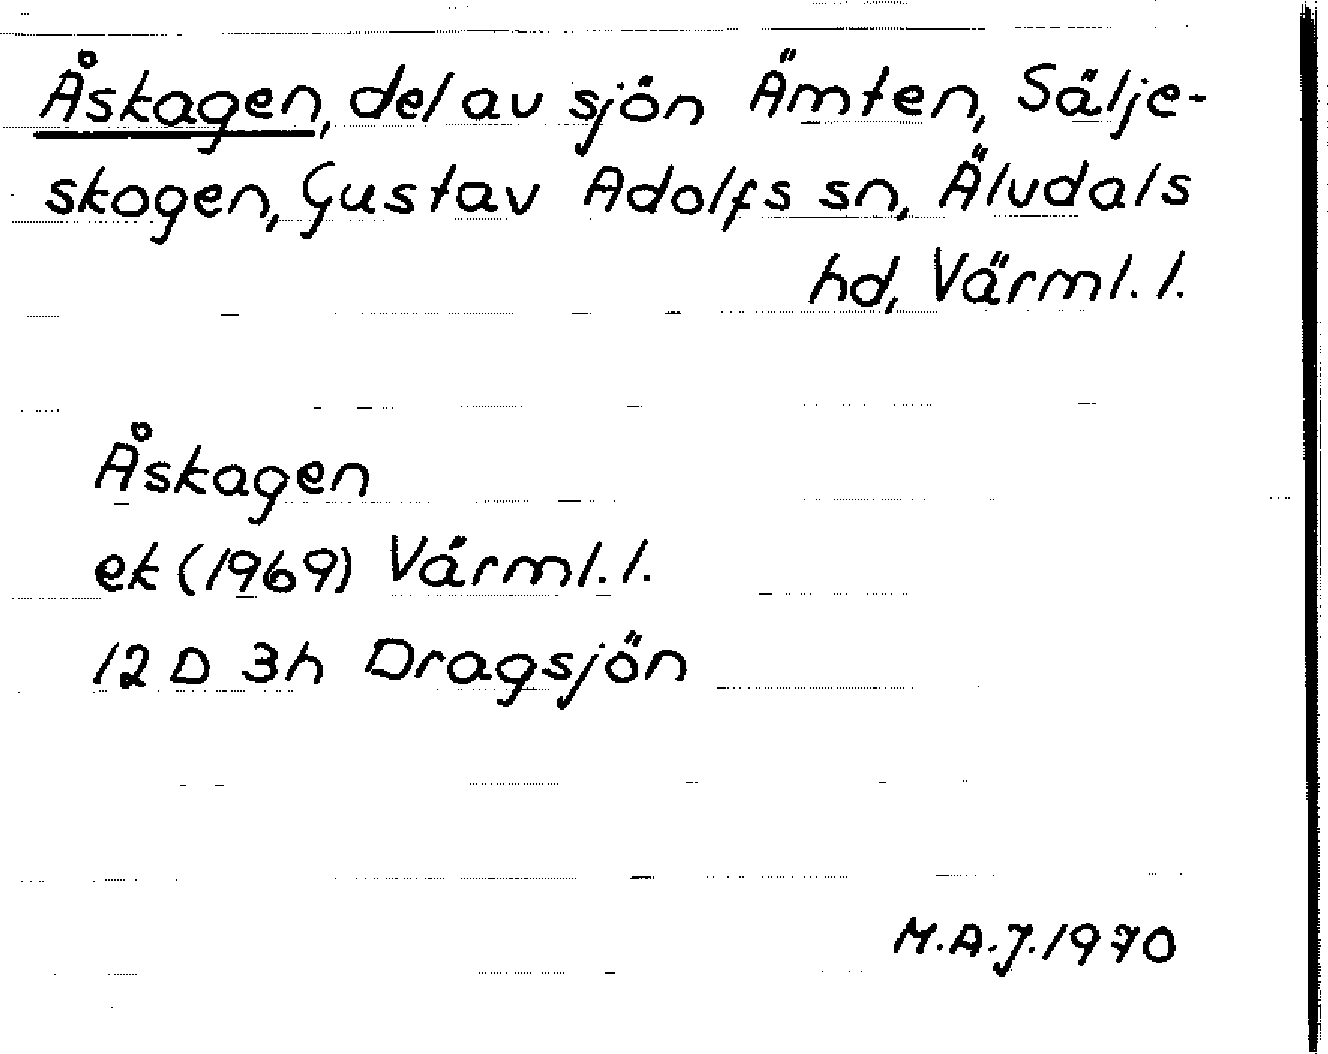 Åskagen, del av sjön Ämten, Sälje-
skogen, Gustav Adolfs sn, Älvdals
hd, Värml. l.
Åskagen
ek (1969) Värml. l.
12 D 3h Dragsjön
M.A.J. 1970